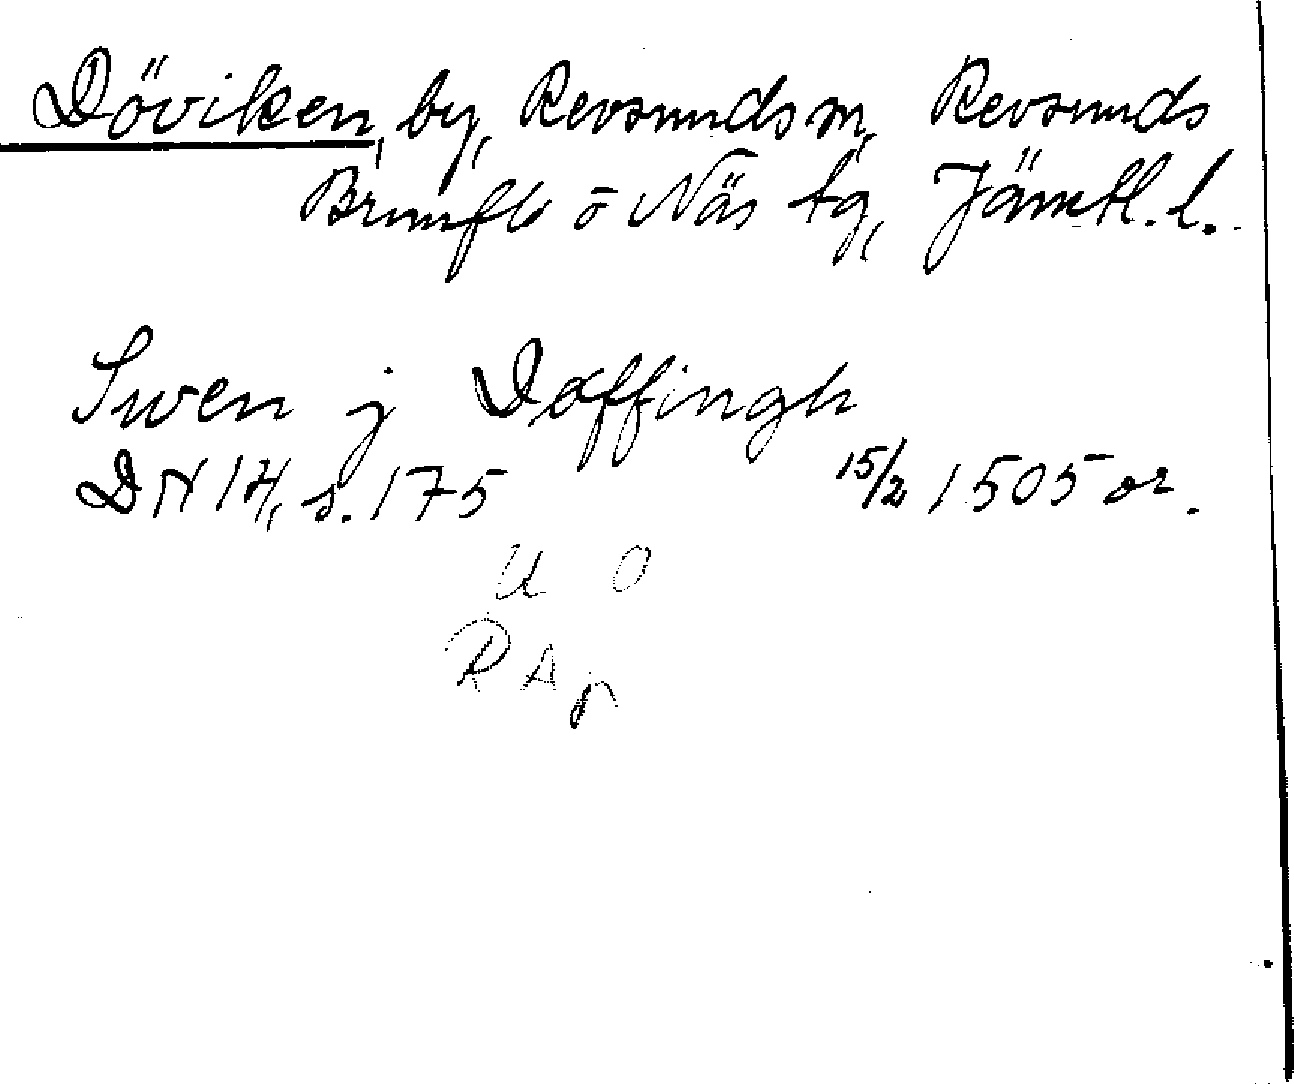 Döviken, by, Revsunds sn, Revsunds
Brunflo o Näs tg, Jämtl. l.
Swen j Døffingh
DN 14, s. 175 15/2 1505 or.
U O
RAp